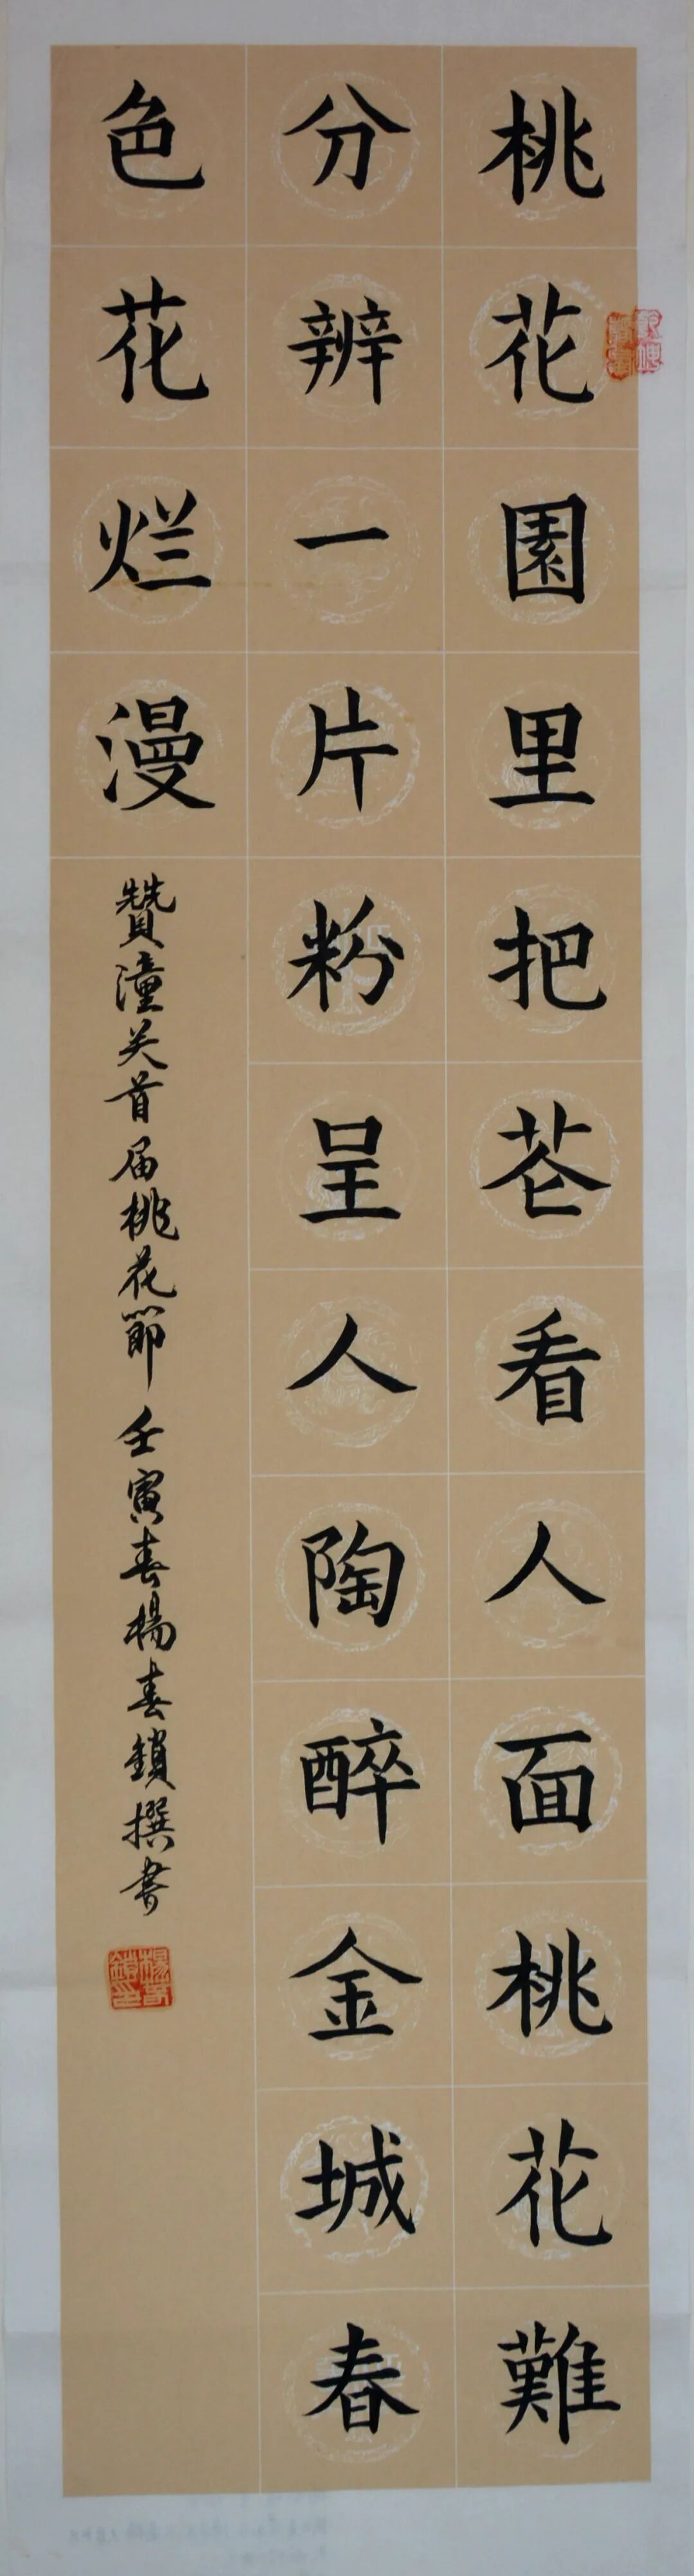 桃花園里把苍看人面桃花難
分辨一片粉呈人陶醉金城春
色花烂漫
贊潼关首届桃花節 壬寅春楊春鎖撰書